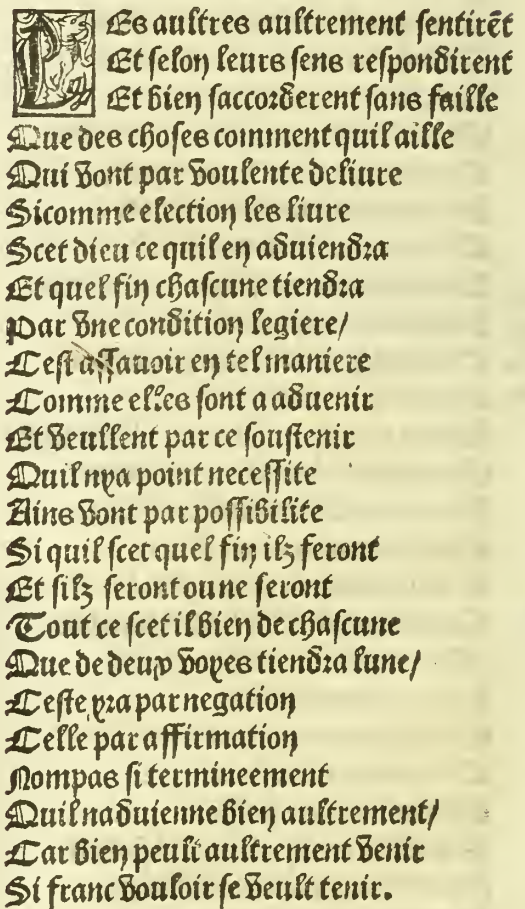 LEs aultres aultrement sentirēt
Et selon leurs sens respondirent
Et bien saccorderent sans faille
Que des choses comment quil aille
Qui vont par voulente delivre
Sicomme election les livre
Scet dieu ce quil en adviendra
Et quel fin chascune tiendra
Par une condition legiere/
Cest assavoir en tel maniere
Comme elles sont a advenir
Et veullent par ce soustenir
Quil nya point necessite
Ains vont par possibilite
Si quil scet quel fin ilz feront
Et silz seront ou ne seront
Tout ce scet il bien de chascune
Que de deux voyes tiendra lune/
Ceste yra par negation
Celle par affirmation
Nompas si termineement
Quil nadvienne bien aultrement/
Car bien peult aultrement venir
Si franc vouloir se veult tenir.